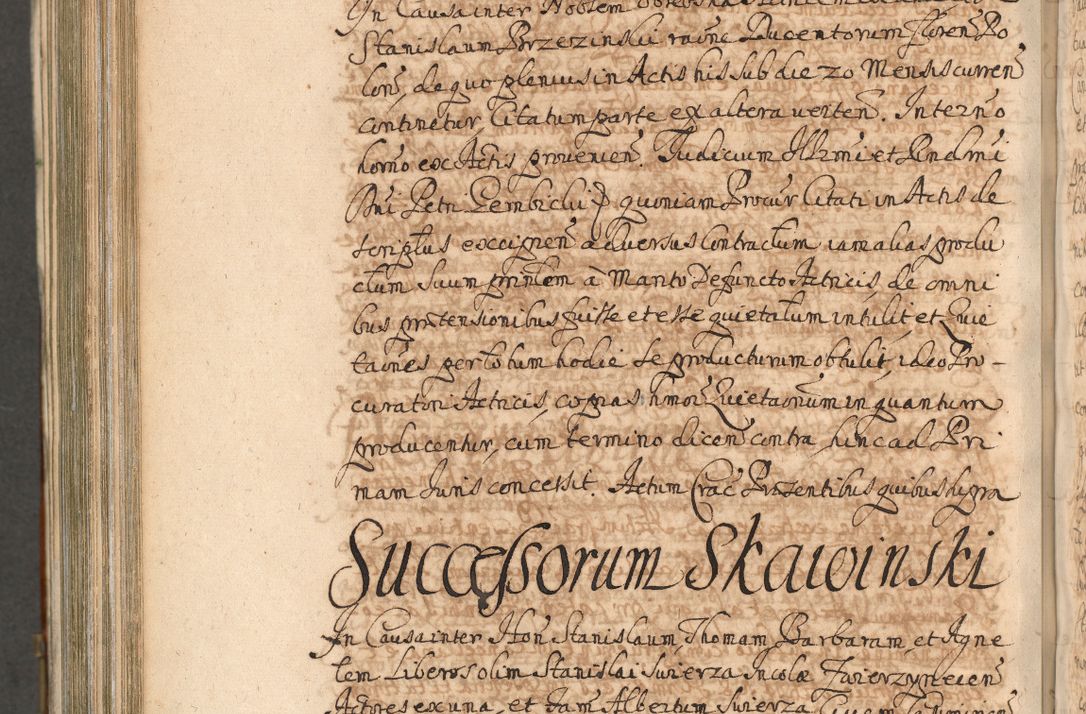 In Causa inter Noblem
Stanislaum Brzezinski raõne Ducentorum florenõ Po
lon̄, de quo plenius in Actis his sub die 20 Mensis curren̄
continetur, Citatum parte ex altera verten̄. In termõ
horño ex Actis provenien̄. Judicium Illrmi et Rndmi
Dni Petri Gembicki quoniam Procur Citati in Actis de
scriptus excipien̄ adversus Contractum iam alias produ
ctum Suum prinlem à Marito Defuncto Actricis, de omni
bus prætensionibus fuisse et esse quietatum intulit, et Quie
taõnes per totum hodie se producturum obtulit, ideo Pro-
curatori Actricis, copias hmõi Quietaõnum in quantum
producentur, cum termino dicen̄ contra hinc ad Pri
mam Juris concessit. Actum Crac̄ Præsentibus quibus supra
Successorum Skawinski
In Causa inter Hon̄ Stanislaum, Thomam, Barbaram, et Agne
tem Liberos olim Stanislai Swierza Incolæ Zwierzyniecen̄
Actores ex una, et Fam̄ Albertum Swierza